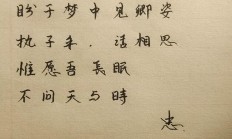 盼于梦中见卿姿
执子手，话相思
惟愿吾長眠
不问天与時
忠